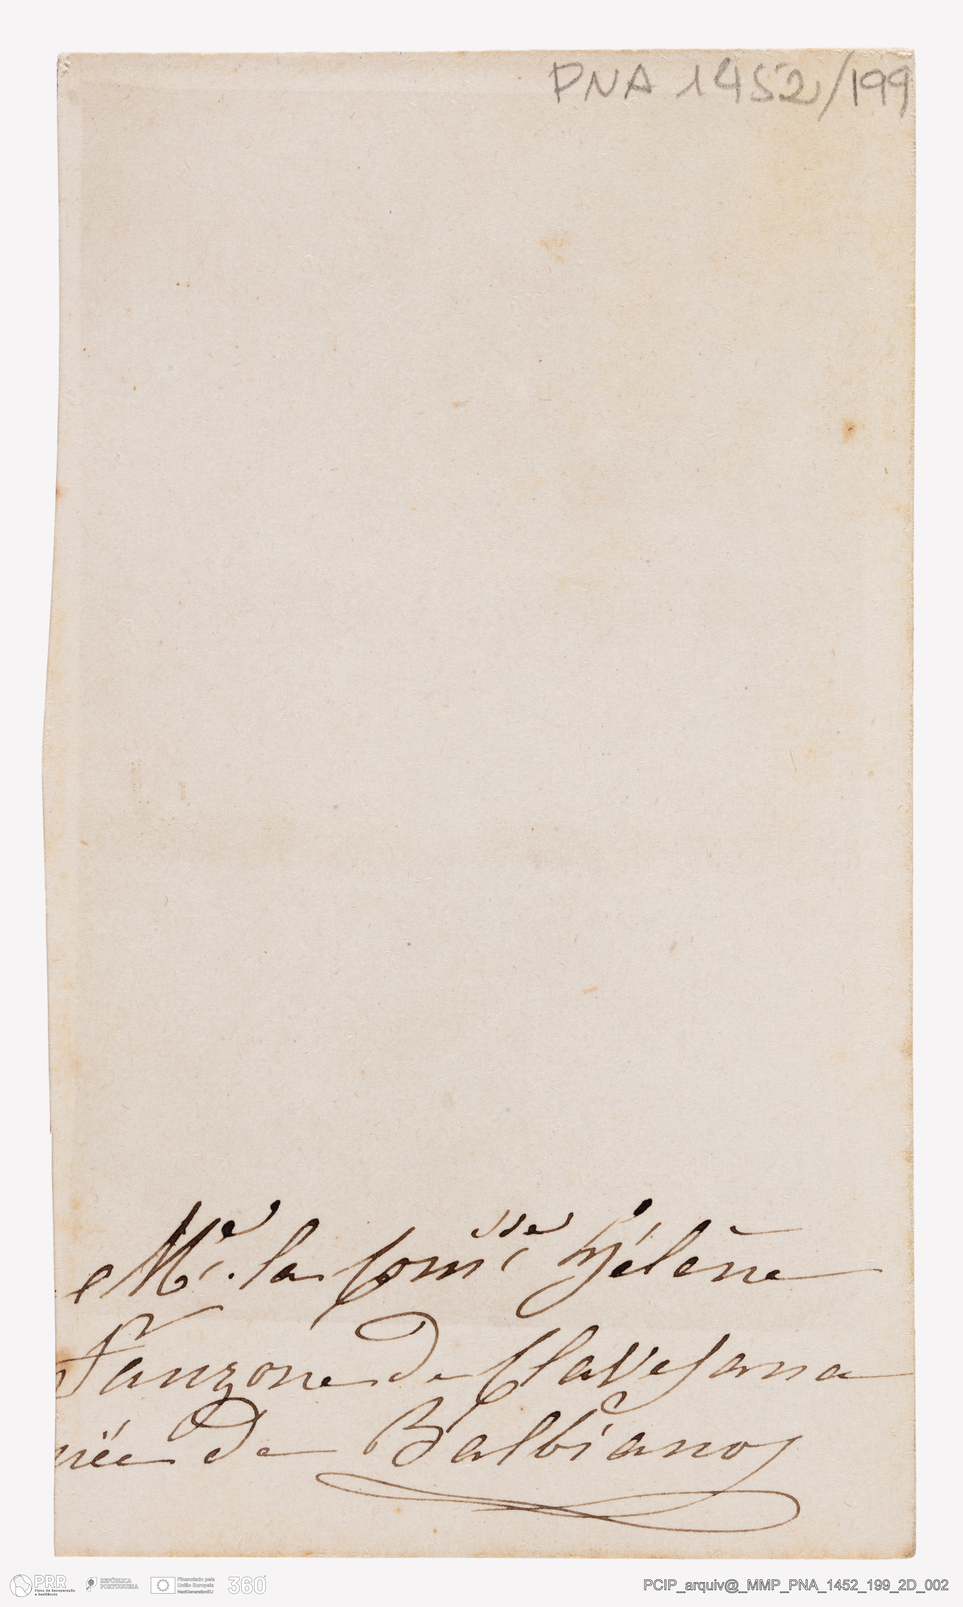 PNA 1452/199
Mᵉ. la Comᵗˢˢᵉ Hélène
Fanzone de Clavesana
née de Balbiano
PRR
Plano de Recuperação
e Resiliência
REPÚBLICA
PORTUGUESA
Financiado pela
União Europeia
NextGenerationEU
360
PCIP_arquiv@_MMP_PNA_1452_199_2D_002